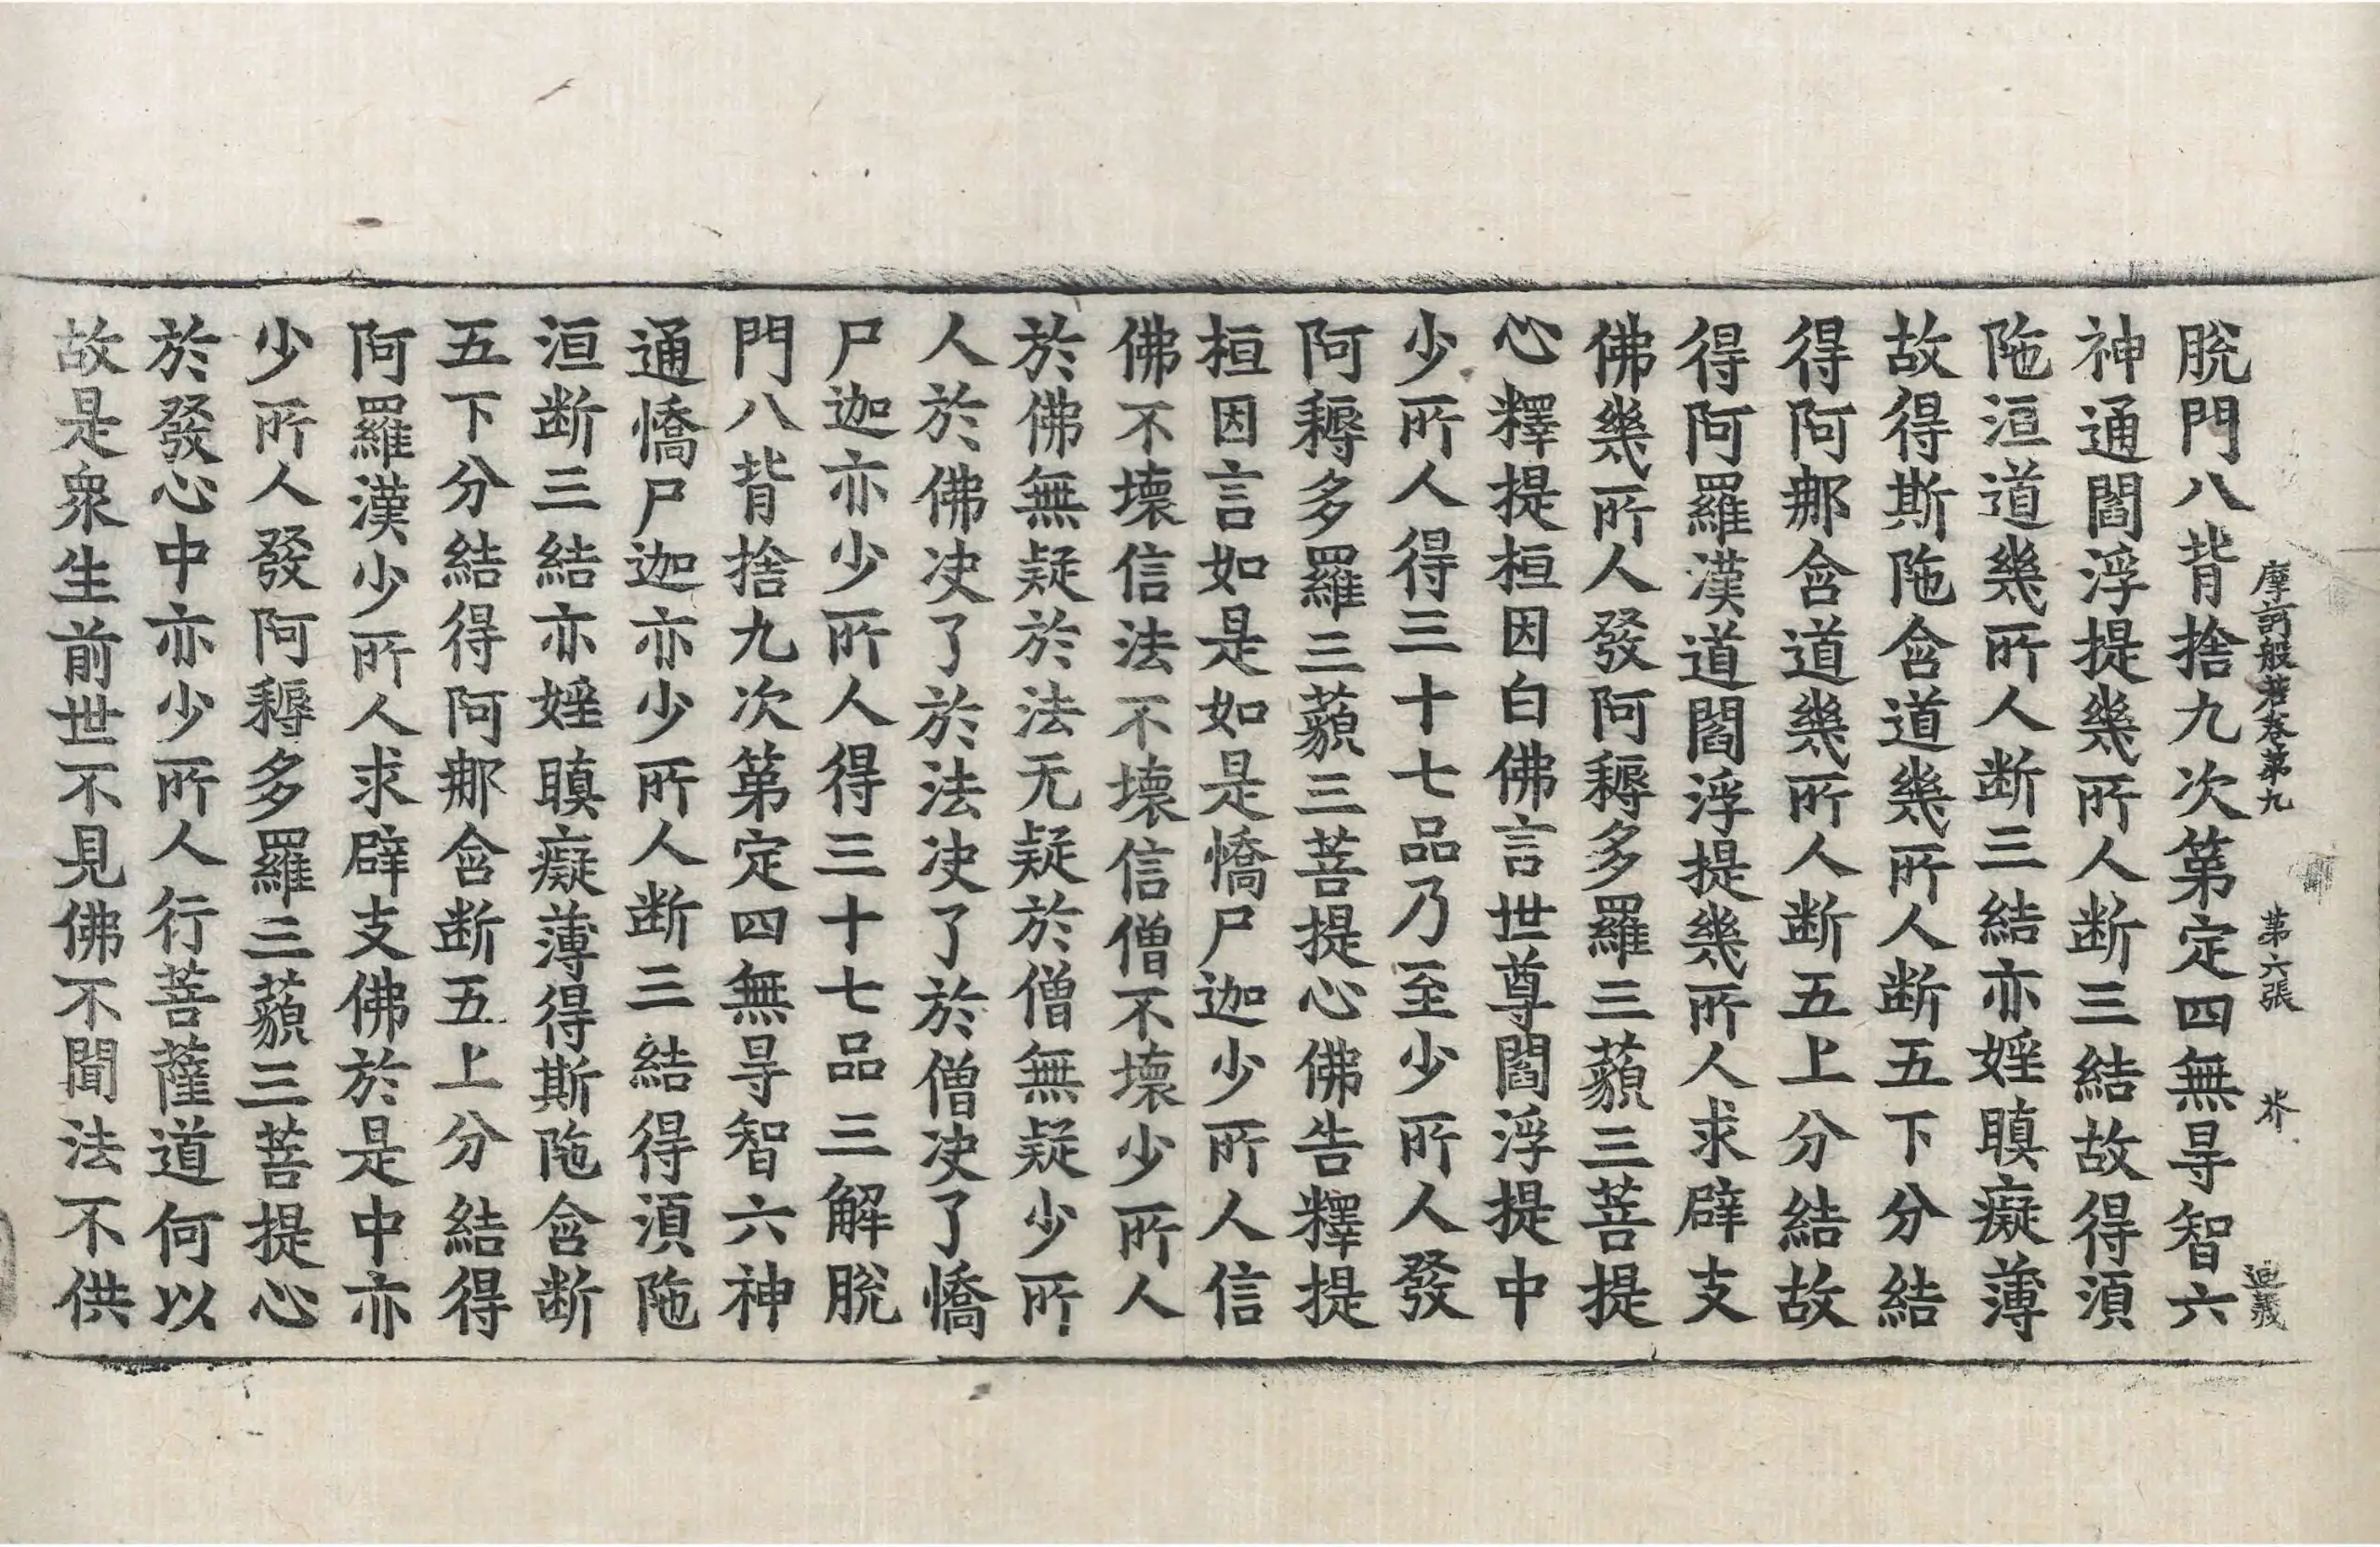 摩訶般若卷第九　第六張　芥
脫門八背捨九次第定四無㝵智六
神通閻浮提幾所人断三結故得湏
陁洹道幾所人断三結亦婬瞋癡薄
故得斯陁含道幾所人断五下分結
得阿那含道幾所人断五上分結故
得阿羅漢道閻浮提幾所人求辟支
佛幾所人發阿耨多羅三藐三菩提
心釋提桓因白佛言世尊閻浮提中
少所人得三十七品乃至少所人發
阿耨多羅三藐三菩提心佛告釋提
桓因言如是如是憍尸迦少所人信
佛不壞信法不壞信僧不壞少所人
於佛無疑於法无疑於僧無疑少所
人於佛决了於法决了於僧决了憍
尸迦亦少所人得三十七品三解脫
門八背捨九次第定四無㝵智六神
通憍尸迦亦少所人断三結得湏陁
洹断三結亦婬瞋癡薄得斯陁含断
五下分結得阿那含断五上分結得
阿羅漢少所人求辟支佛於是中亦
少所人發阿耨多羅三藐三菩提心
於發心中亦少所人行菩薩道何以
故是衆生前世不見佛不聞法不供